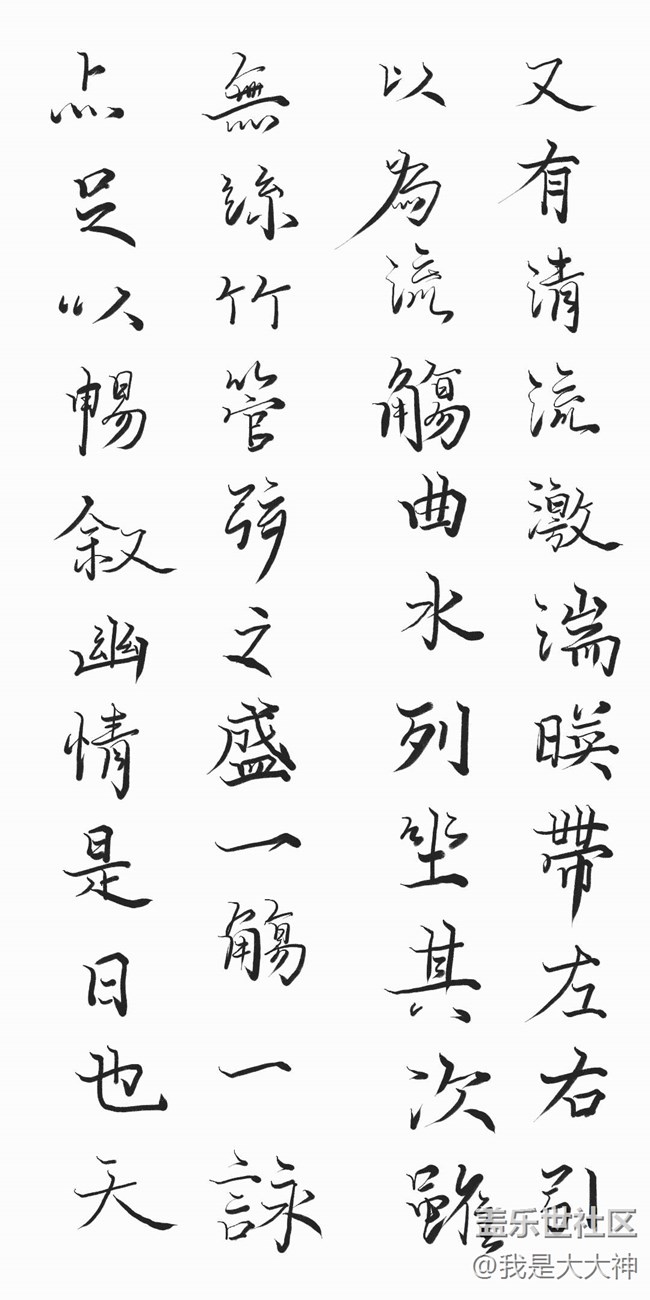 又有清流激湍暎帶左右引
以為流觴曲水列坐其次雖
無絲竹管弦之盛一觴一詠
点足以暢叙幽情是日也天
盖乐世社区
@我是大大神